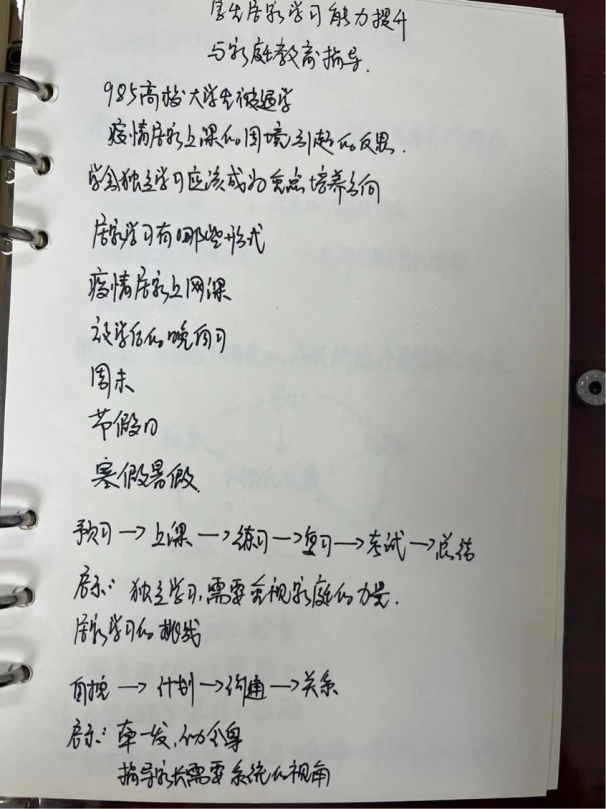 学生居家学习能力提升
与家庭教育指导.
985高校大学生被退学
疫情居家上课的困境引起的反思.
学会独立学习应该成为重点培养方向
居家学习有哪些形式
疫情居家上网课
放学后的晚自习
周末
节假日
寒假暑假.
预习→上课→练习→复习→考试→总结
启示: 独立学习,需要重视家庭的力量.
居家学习的挑战
自控→计划→沟通→关系
启示: 牵一发,动全身
指导家长需要系统的视角